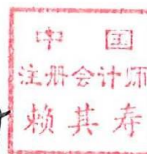 中国
注册会计师
赖其寿